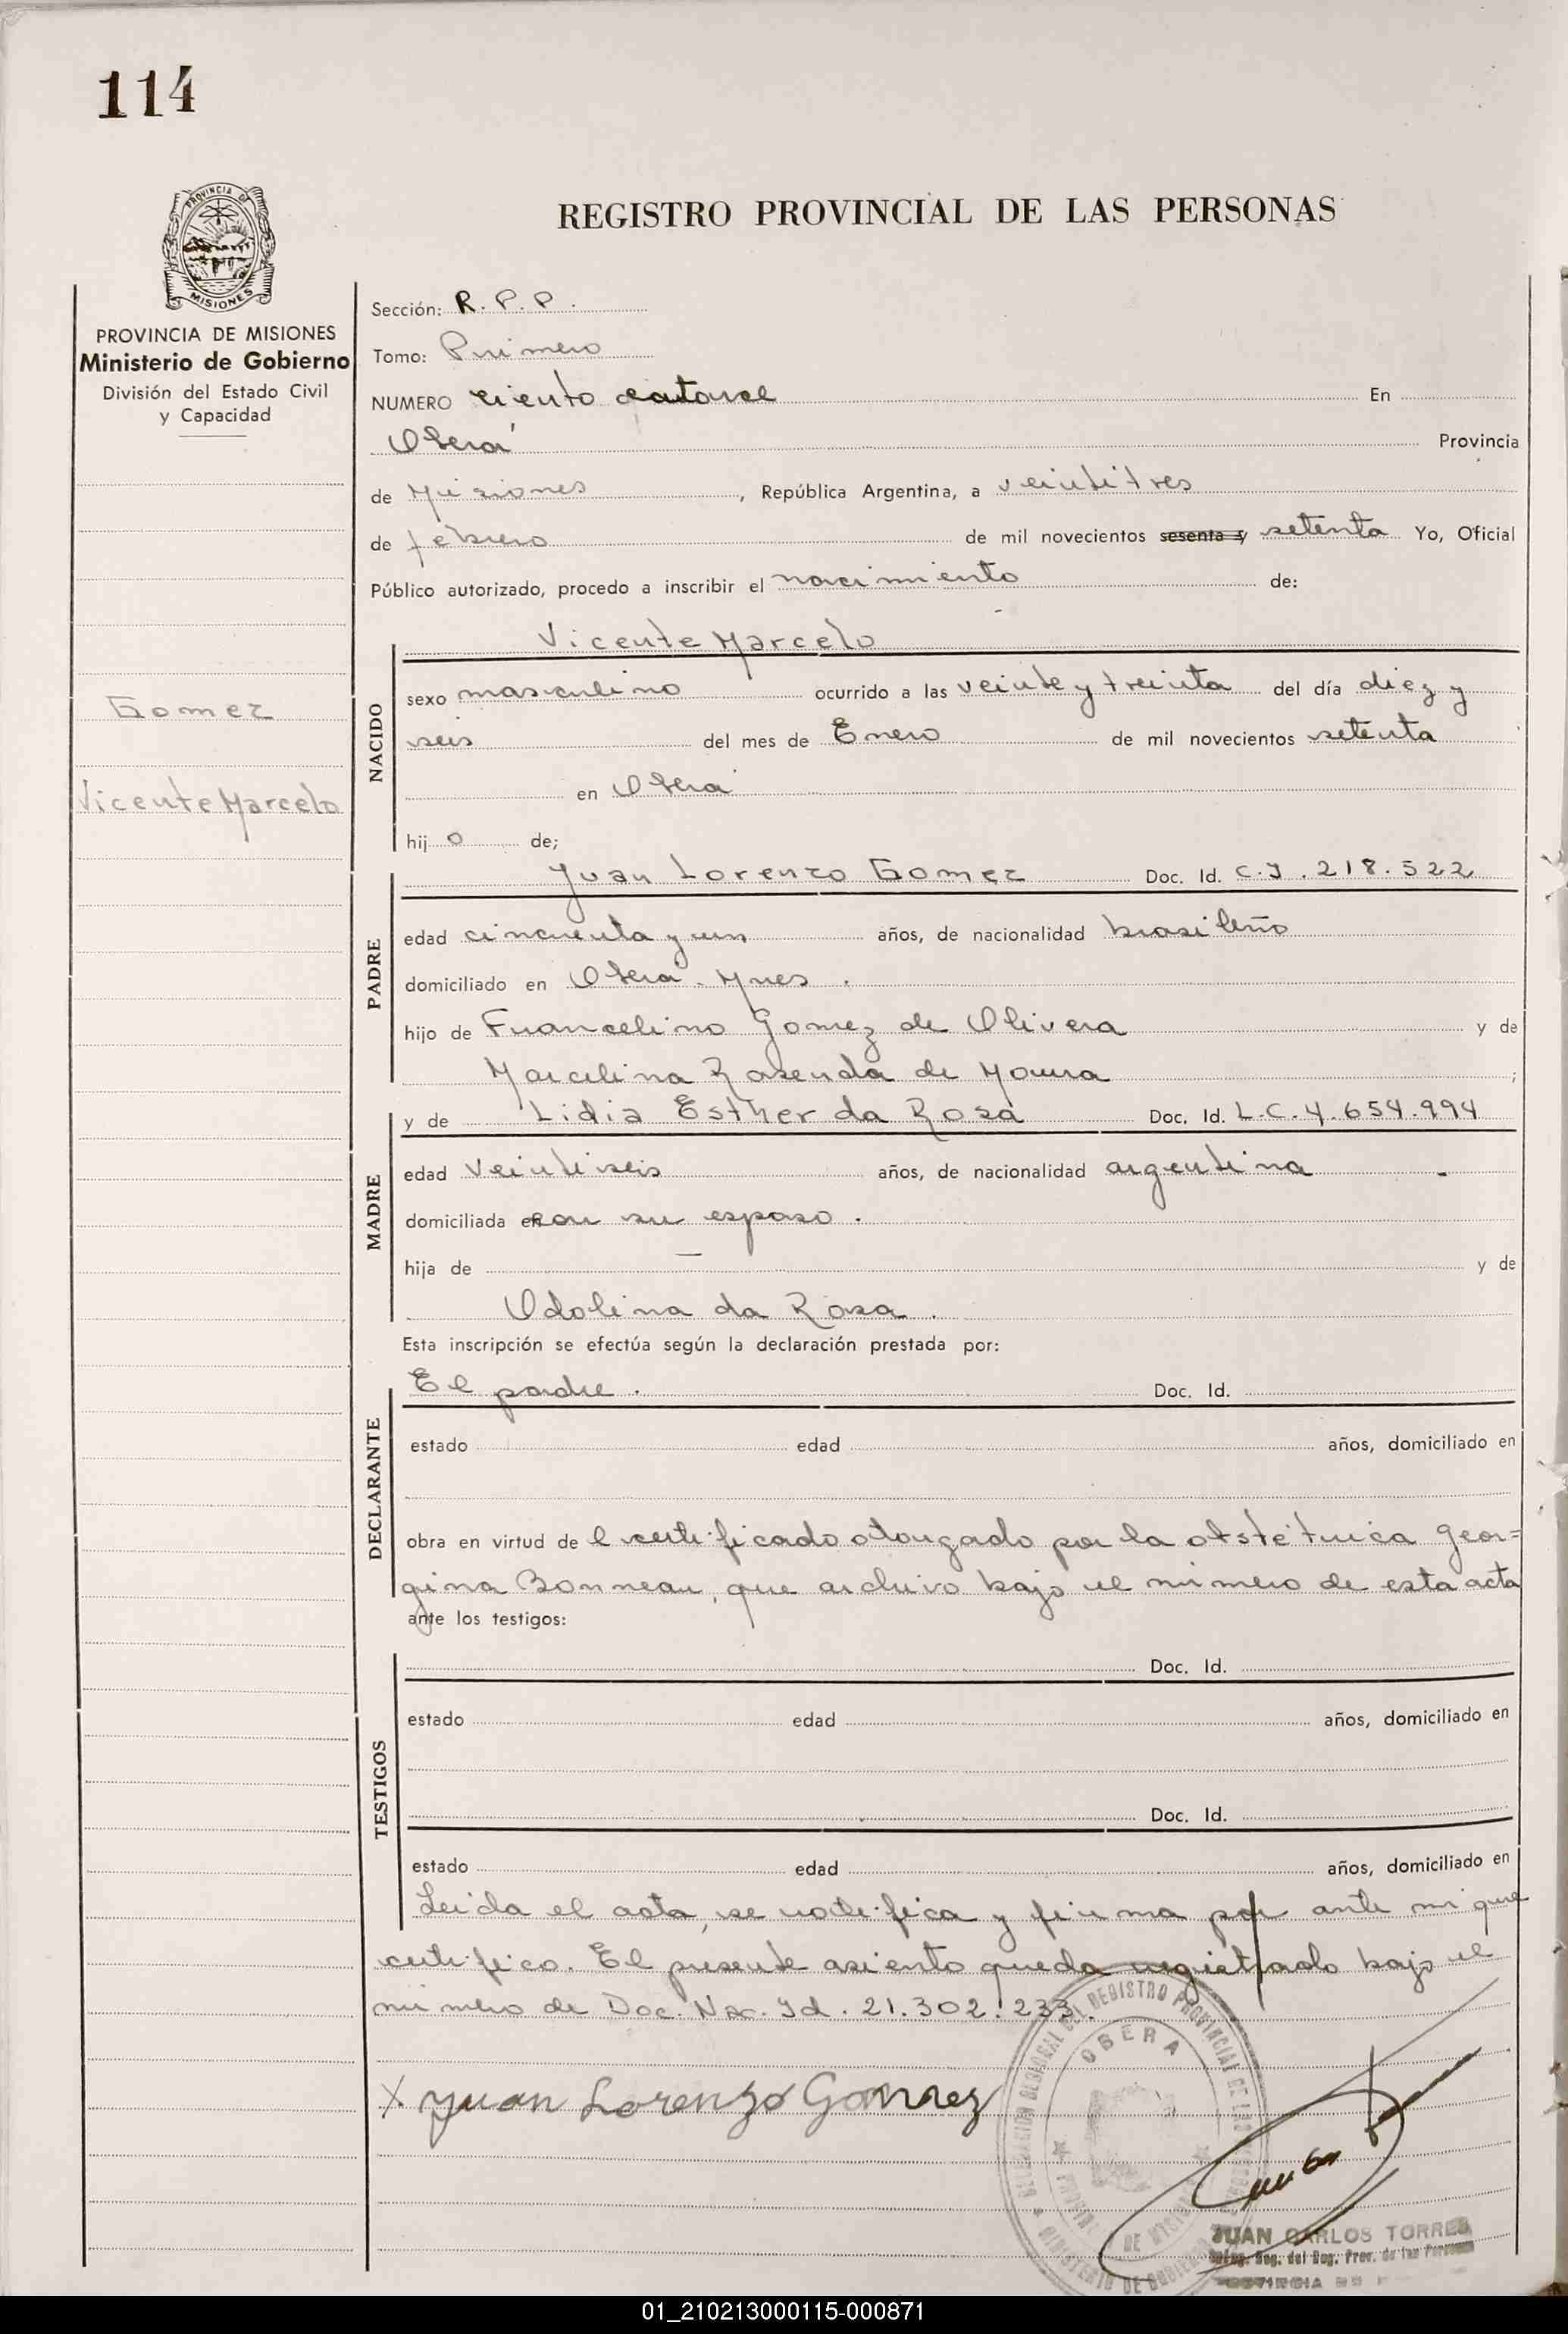 114
PROVINCIA DE
MISIONES
PROVINCIA DE MISIONES
Ministerio de Gobierno
División del Estado Civil
y Capacidad
Gomez
Vicente Marcelo
REGISTRO PROVINCIAL DE LAS PERSONAS
Sección: R. P. P.
Tomo: Primero
NUMERO ciento catorce En
Oberá Provincia
de Misiones, República Argentina, a veintitres
de febrero de mil novecientos sesenta y setenta Yo, Oficial
Público autorizado, procedo a inscribir el nacimiento de:
Vicente Marcelo
NACIDO
sexo masculino ocurrido a las veinte y treinta del día diez y
seis del mes de Enero de mil novecientos setenta
en Oberá
hij o de;
Juan Lorenzo Gomez Doc. Id. C.I. 218.522
PADRE
edad cincuenta y un años, de nacionalidad brasileño
domiciliado en Oberá. Mnes.
hijo de Francelino Gomez de Olivera y de
Marcelina Rosenda de Moura ;
y de Lidia Esther da Rosa Doc. Id. L.C. 4.654.994
MADRE
edad veintiseis años, de nacionalidad argentina
domiciliada en con su esposo.
hija de — y de
Odolina da Rosa.
Esta inscripción se efectúa según la declaración prestada por:
El padre. Doc. Id.
DECLARANTE
estado edad años, domiciliado en
obra en virtud de l certificado otorgado por la obstétrica Geor=
gina Bonneau, que archivo bajo el número de esta acta
ante los testigos:
Doc. Id.
TESTIGOS
estado edad años, domiciliado en
Doc. Id.
estado edad años, domiciliado en
Leida el acta, se ratifica y firma por ante mi que
certifico. El presente asiento queda registrado bajo el
numero de Doc. Nac. Id. 21.302.233.
X Juan Lorenzo Gomez
DELEGACION REGIONAL DEL REGISTRO PROVINCIAL DE LAS
OBERA
MINISTERIO DE GOBIERNO
JUAN CARLOS TORRES
Reg. del Reg. Prov. de las Personas
01_210213000115-000871